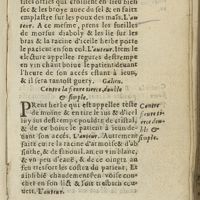 tites offies qui croissent en lieu bien
sec & les broye auec du sel & en faire
emplastre sur les poux des mains. L'au-
teur. A ce mesme, prens les fueilles
de morsus diaboly & les lie sur les
bras & la racine d'icelle herbe porte
le patient en son col. L'auteur. Item le
electuaire appellee regutes destrempe
en vin chaut boiue le patient deuant
l'heure de son accés estant à ieun,
& il sera tantost guery. Galien.
Contre la fieure tierce, double
& simple.
PRent herbe qui est appellee teste
de moine & en tire le ius & d'icel
luy ius destrempe pouldre de cristal,
& de ce boiue le patient à ieun de-
uant son accés. L'auteur. Autrement
faite cuire la racine d'armoise & d'ab
sinthe, & de fanouil, au en vin blanc,
& vn peu d'eauë, & de ce oingts au
feu tressort les costes du patient. En
apres soit bié chaudement en vse cou-
chet en son lit & soit tresbien cou-
uert. L'auteur.
Contre
fieure ti-
erce dou-
ble &
simple.